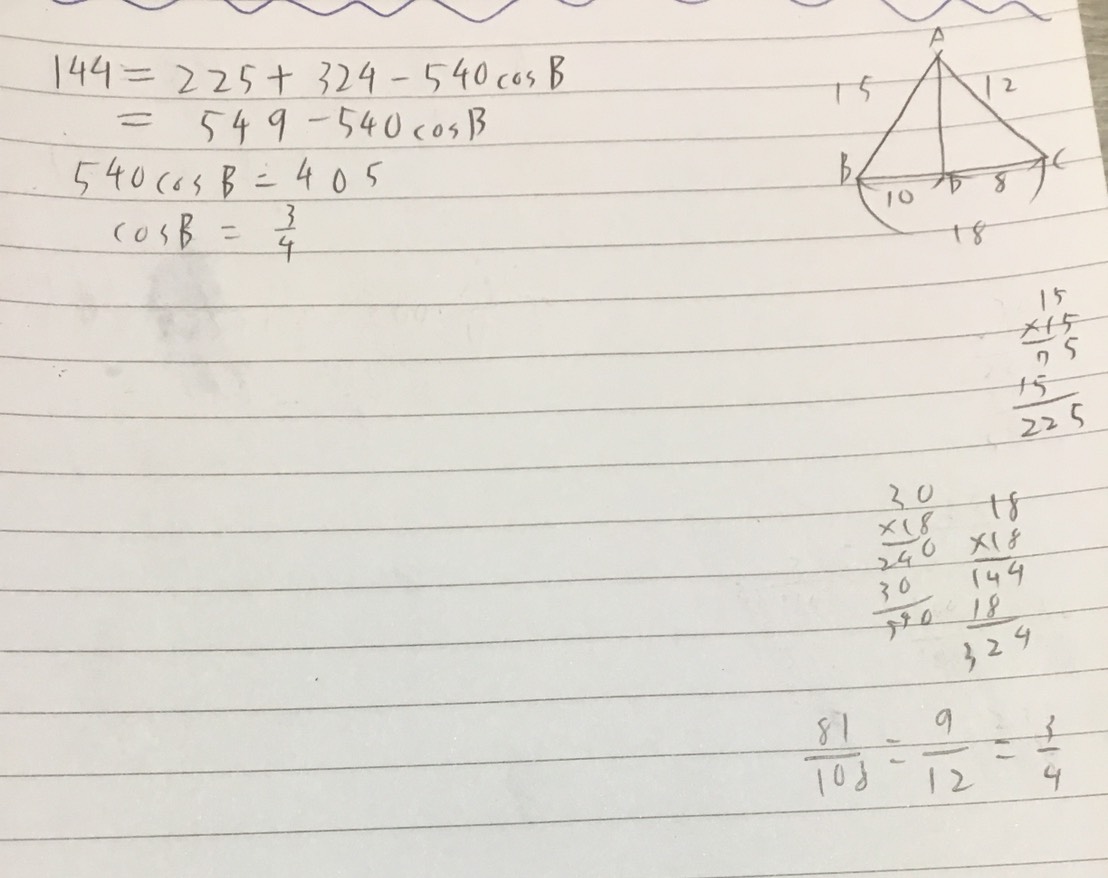 144 = 225 + 324 - 540 cos B
= 549 - 540 cos B
540 cos B = 405
cos B = 3/4
A
15
12
B
D
C
10
8
18
15
×15
75
15
225
30
×18
240
30
540
18
×18
144
18
324
81/108 = 9/12 = 3/4